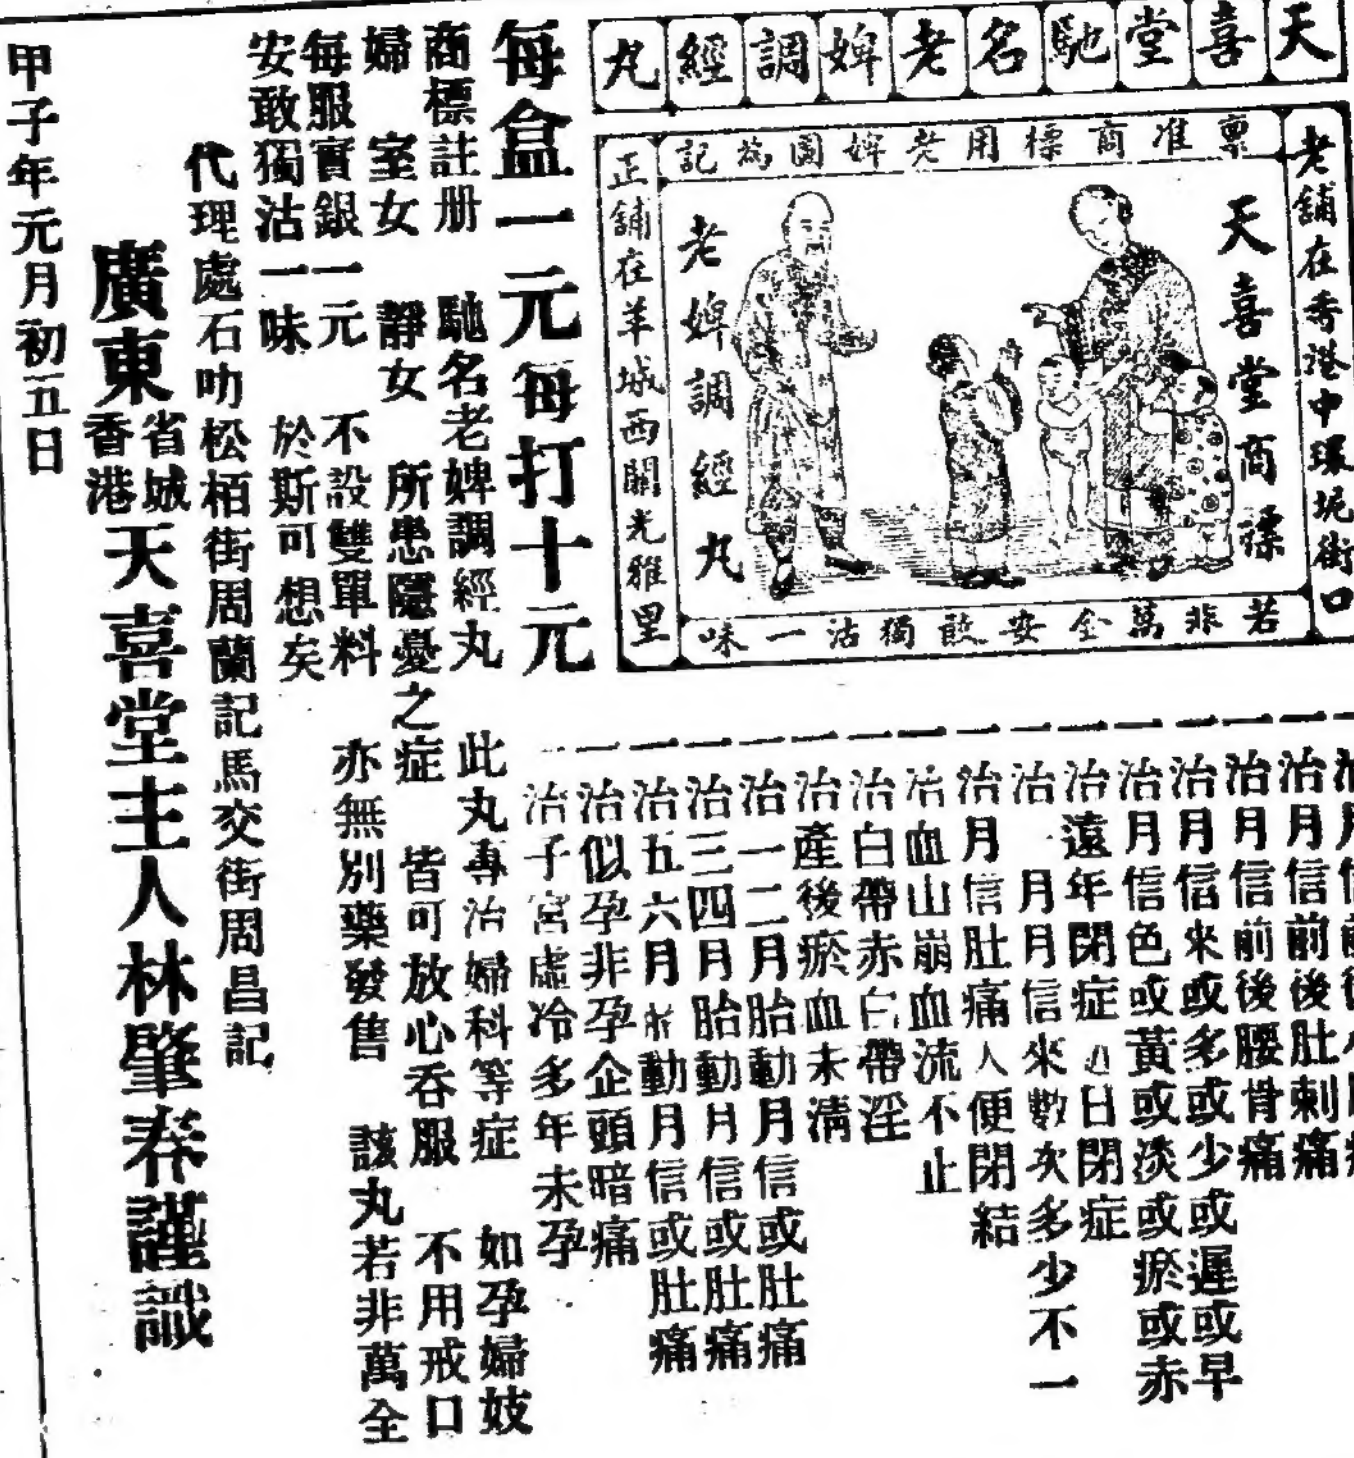 天喜堂馳名老婢調經丸
稟准商標用老婢圖為記
老舖在香港中環坭街口
天喜堂商標
老婢調經丸
正舖在羊城西關光雅里
若非萬全安敢獨沽一味
治月信前後
治月信前後肚刺痛
治月信前後腰骨痛
一治月信來或多或少或遲或早
一治月信色或黃或淡或瘀或赤
一治遠年閉症近日閉症
一治一月月信來數次多少不一
一治月信肚痛人便閉結
一治血山崩血流不止
一治白帶赤白帶淫
一治產後瘀血未清
一治一二月胎動月信或肚痛
一治三四月胎動月信或肚痛
一治五六月胎動月信或肚痛
一治似孕非孕企頭暗痛
一治子宮虛冷多年未孕
每盒一元每打十元
商標註册 馳名老婢調經丸 此丸專治婦科等症 如孕婦妓
婦 室女 靜女 所患隱憂之症 皆可放心吞服 不用戒口
每服實銀一元 不設雙單料 亦無別藥發售 該丸若非萬全
安敢獨沽一味 於斯可想矣
代理處石叻松栢街周蘭記馬交街周昌記
廣東省城香港天喜堂主人林肇春謹識
甲子年元月初五日